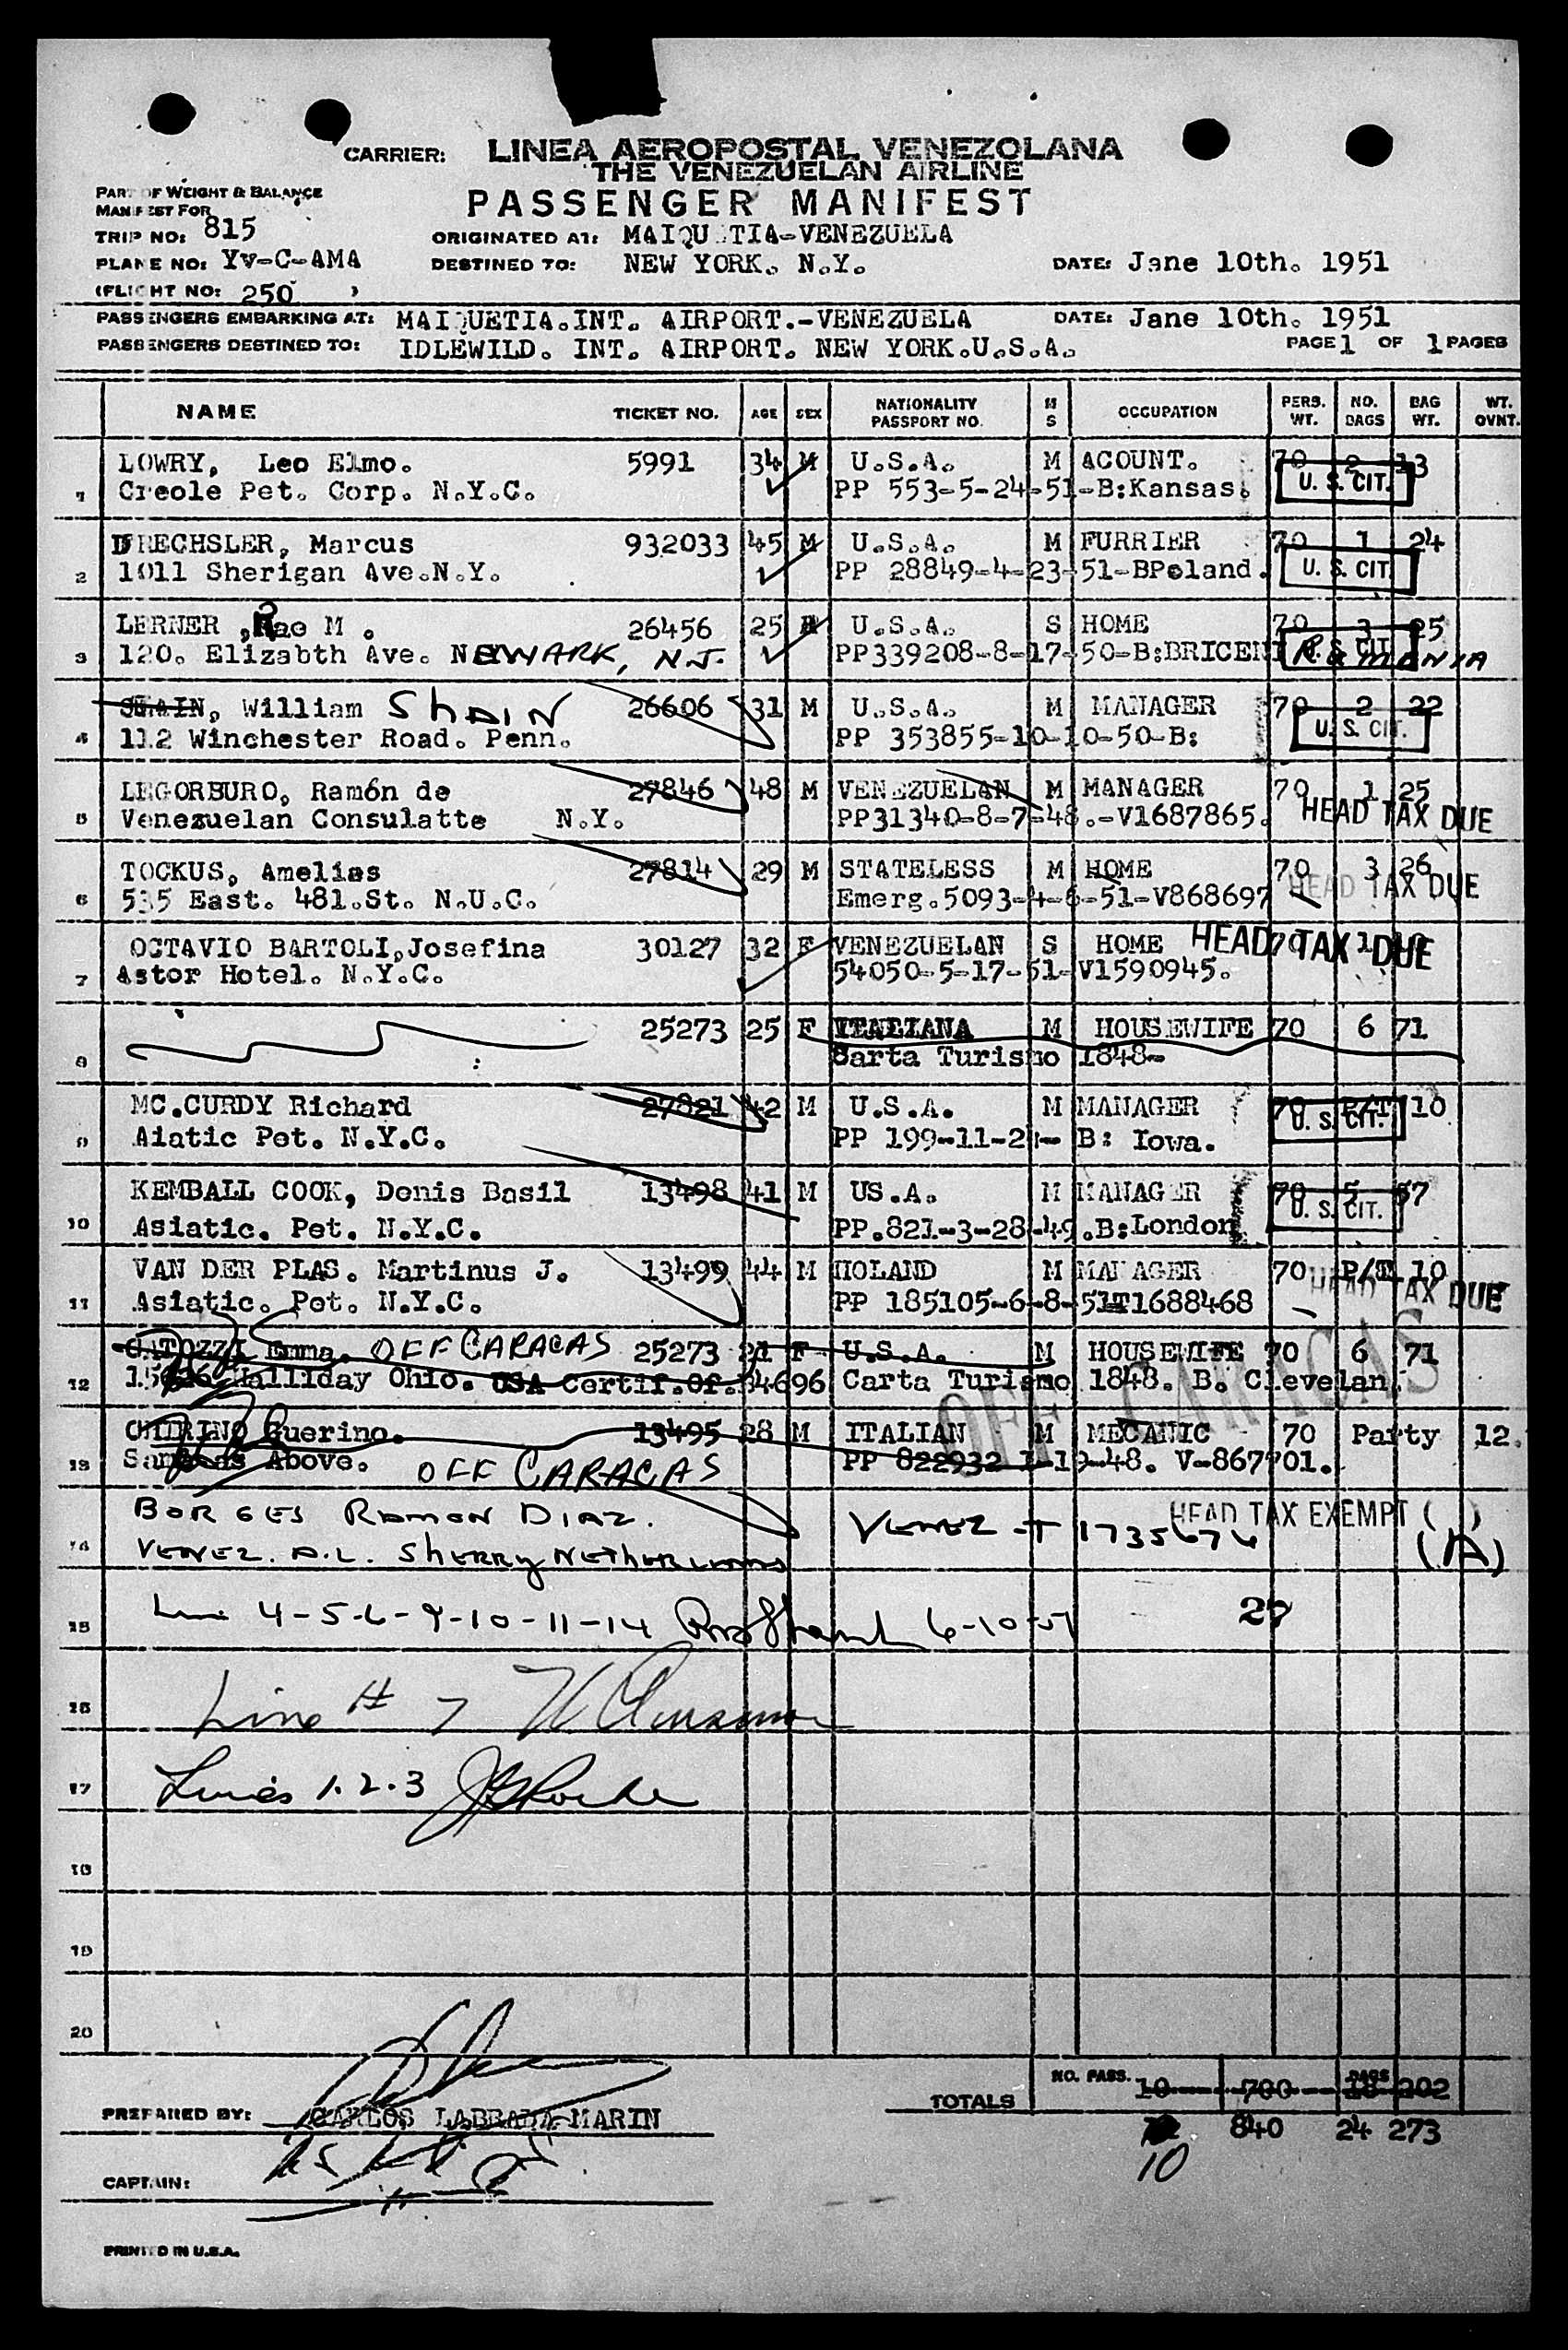 CARRIER: LINEA AEROPOSTAL VENEZOLANA
THE VENEZUELAN AIRLINE
PASSENGER MANIFEST
PART OF WEIGHT & BALANCE
MANIFEST FOR
TRIP NO: 815
ORIGINATED AT: MAIQUETIA-VENEZUELA
PLANE NO: YV-C-AMA
DESTINED TO: NEW YORK. N.Y.
DATE: Jane 10th. 1951
(FLIGHT NO: 250 )
PASSENGERS EMBARKING AT: MAIQUETIA.INT. AIRPORT.-VENEZUELA DATE: Jane 10th. 1951
PASSENGERS DESTINED TO: IDLEWILD. INT. AIRPORT. NEW YORK.U.S.A. PAGE 1 OF 1 PAGES
NAME TICKET NO. AGE SEX NATIONALITY PASSPORT NO. M S OCCUPATION PERS. WT. NO. BAGS BAG WT. WT. OVNT.
LOWRY, Leo Elmo. 5991 34 M U.S.A. M ACOUNT. 70 2 13
1 Creole Pet. Corp. N.Y.C. PP 553-5-24-51-B:Kansas. U. S. CIT.
DRECHSLER, Marcus 932033 45 M U.S.A. M FURRIER 70 1 24
2 1011 Sherigan Ave.N.Y. PP 28849-4-23-51-BPoland. U. S. CIT.
LERNER ,Rae M . 26456 25 U.S.A. S HOME 70 3 25
3 120. Elizabth Ave. NEWARK, N.J. PP339208-8-17-50-B:BRICENI ROMANIA U. S. CIT.
SHAIN, William SHAIN 26606 31 M U.S.A. M MANAGER 70 2 22
4 112 Winchester Road. Penn. PP 353855-10-10-50-B: U. S. CIT.
LEGORBURO, Ramón de 27846 48 M VENEZUELAN M MANAGER 70 1 25
5 Venezuelan Consulatte N.Y. PP31340-8-7-48.-V1687865. HEAD TAX DUE
TOCKUS, Amelias 27814 29 M STATELESS M HOME 70 3 26
6 535 East. 481.St. N.U.C. Emerg.5093-4-6-51-V868697 HEAD TAX DUE
OCTAVIO BARTOLI,Josefina 30127 32 F VENEZUELAN S HOME 70 1 HEAD TAX DUE
7 Astor Hotel. N.Y.C. 54050-5-17-51-V1590945.
25273 25 F M HOUSEWIFE 70 6 71
8 Carta Turismo 1848-
MC.CURDY Richard 27821 42 M U.S.A. M MANAGER 70 P/T 10
9 Aiatic Pet. N.Y.C. PP 199-11-2 - B: Iowa. U. S. CIT.
KEMBALL COOK, Denis Basil 13498 41 M US.A. M MANAGER 70 5 57
10 Asiatic. Pet. N.Y.C. PP.821-3-28-49.B:London U. S. CIT.
VAN DER PLAS. Martinus J. 13499 44 M HOLAND M MANAGER 70 P/T 10
11 Asiatic. Pet. N.Y.C. PP 185105-6-8-51T1688468 HEAD TAX DUE
Emma. OFF CARACAS 25273 21 F U.S.A. M HOUSEWIFE 70 6 71
12 Halliday Ohio. USA Certif.Of.34696 Carta Turismo 1848. B. Clevelan.
OFF CARACAS
Guerino. 13495 28 M ITALIAN M MECANIC 70 Party 12.
13 Same as Above. OFF CARACAS PP 822932 1-19-48. V-867701.
BORGES RAMON DIAZ. VENEZ - T 1735676 HEAD TAX EXEMPT ( )
14 VENEZ. A.L. SHERRY NETHERLANDS (A)
15 4-5-6-9-10-11-14 6-10-51 27
16 Line # 7
17 Lines 1.2.3
18
19
20
TOTALS NO. PASS. 10 700 BAGS 18 202
840 24 273
10
PREPARED BY: CARLOS LABRADA MARIN
CAPTAIN:
PRINTED IN U.S.A.